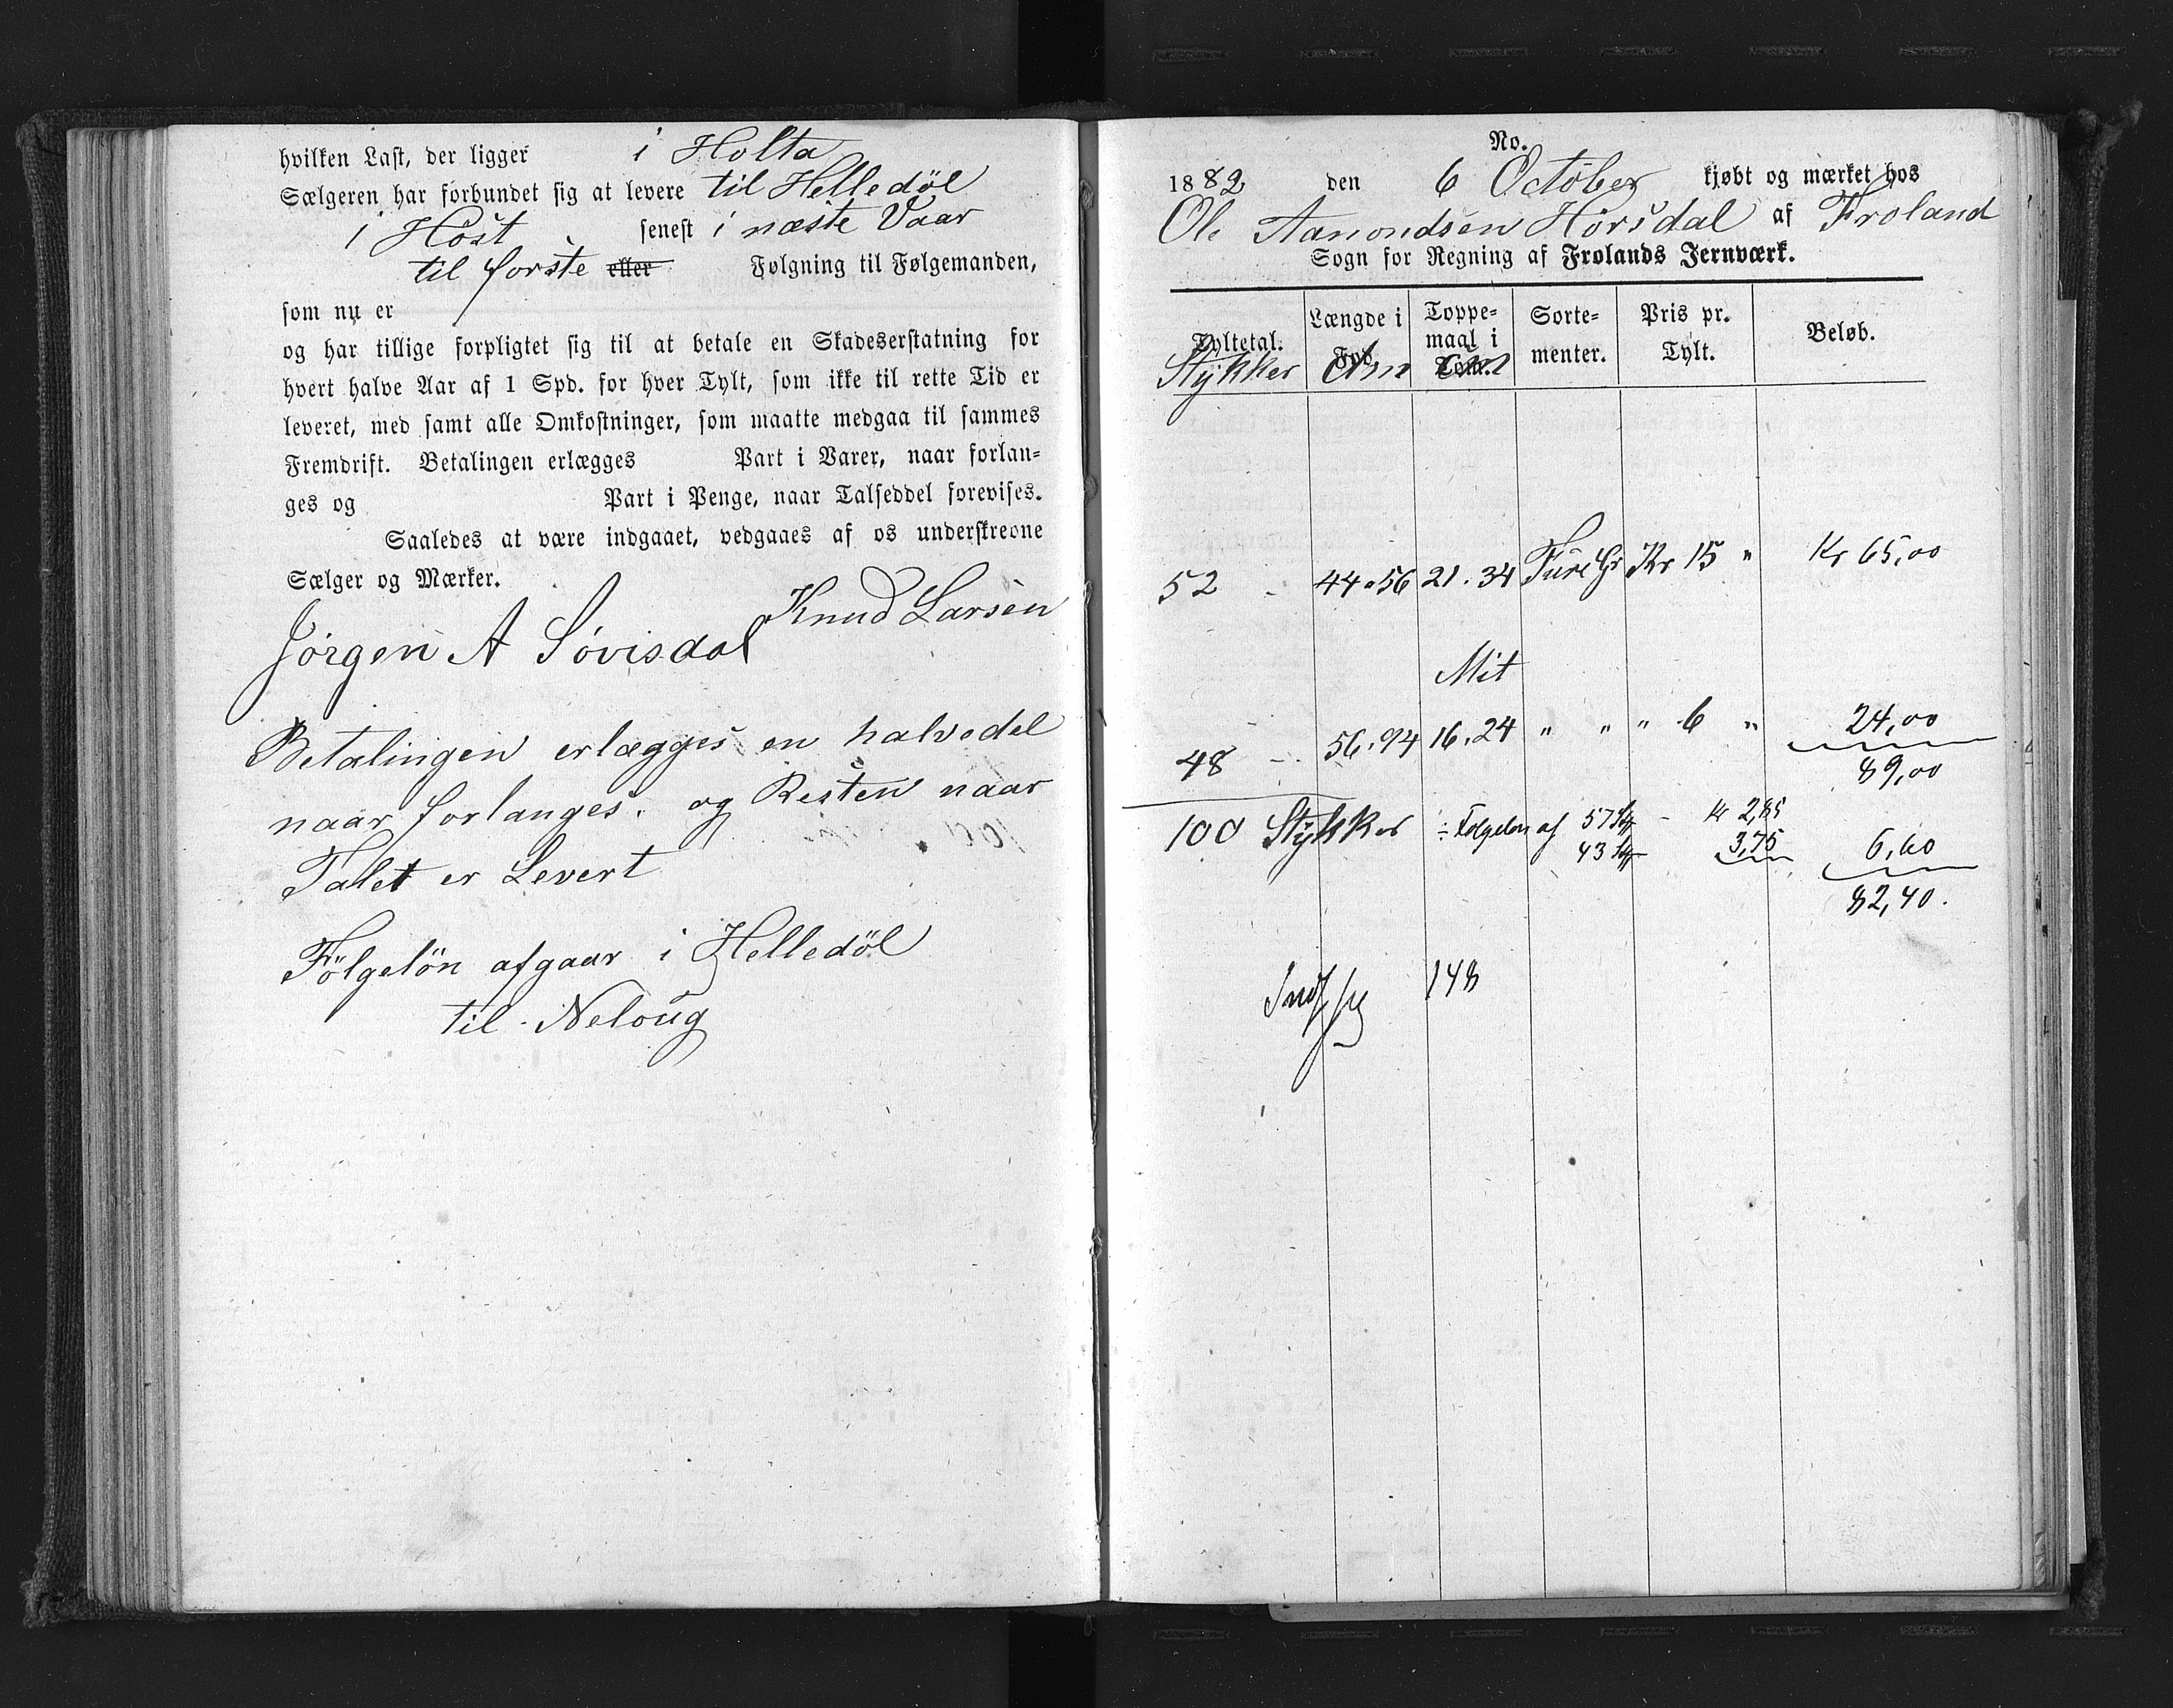 hvilken Last, der ligger i Holta
Sælgeren har forbundet sig at levere til Helledöl
i Höst senest i næste Vaar
til förste eller Følgning til Følgemanden,
som nu er
og har tillige forpligtet sig til at betale en Skadeserstatning for
hvert halve Aar af 1 Spd. for hver Tylt, som ikke til rette Tid er
leveret, med samt alle Omkostninger, som maatte medgaa til sammes
Fremdrift. Betalingen erlægges Part i Varer, naar forlan-
ges og Part i Penge, naar Talseddel forevises.
Saaledes at være indgaaet, vedgaaes af os underskrevne
Sælger og Mærker.
Knud Larsen
Jörgen A Sövisdal
Betalingen erlægges en halvedel
naar forlanges. og Resten naar
Talet er Levert
Fölgelön afgaar i Helledöl
til Neloug
No.
1882 den 6 October kjøbt og mærket hos
Ole Aanondsen Hörsdal af Froland
Sogn for Regning af Frolands Jernværk.
Tyltetal. Længde i Fod. Toppe-maal i Tom. Sorte-menter. Pris pr. Tylt. Beløb.
Stykker
52 44 56 21. 34 Furu Gr Kr 15 " Kr 65,00
Mit
48 56. 94 16. 24 " " " 6 " 24,00
89,00
100 Stykker ÷ Fölgelön af 57 Kr 2,85
43 3,75 6,60
82,40.
148